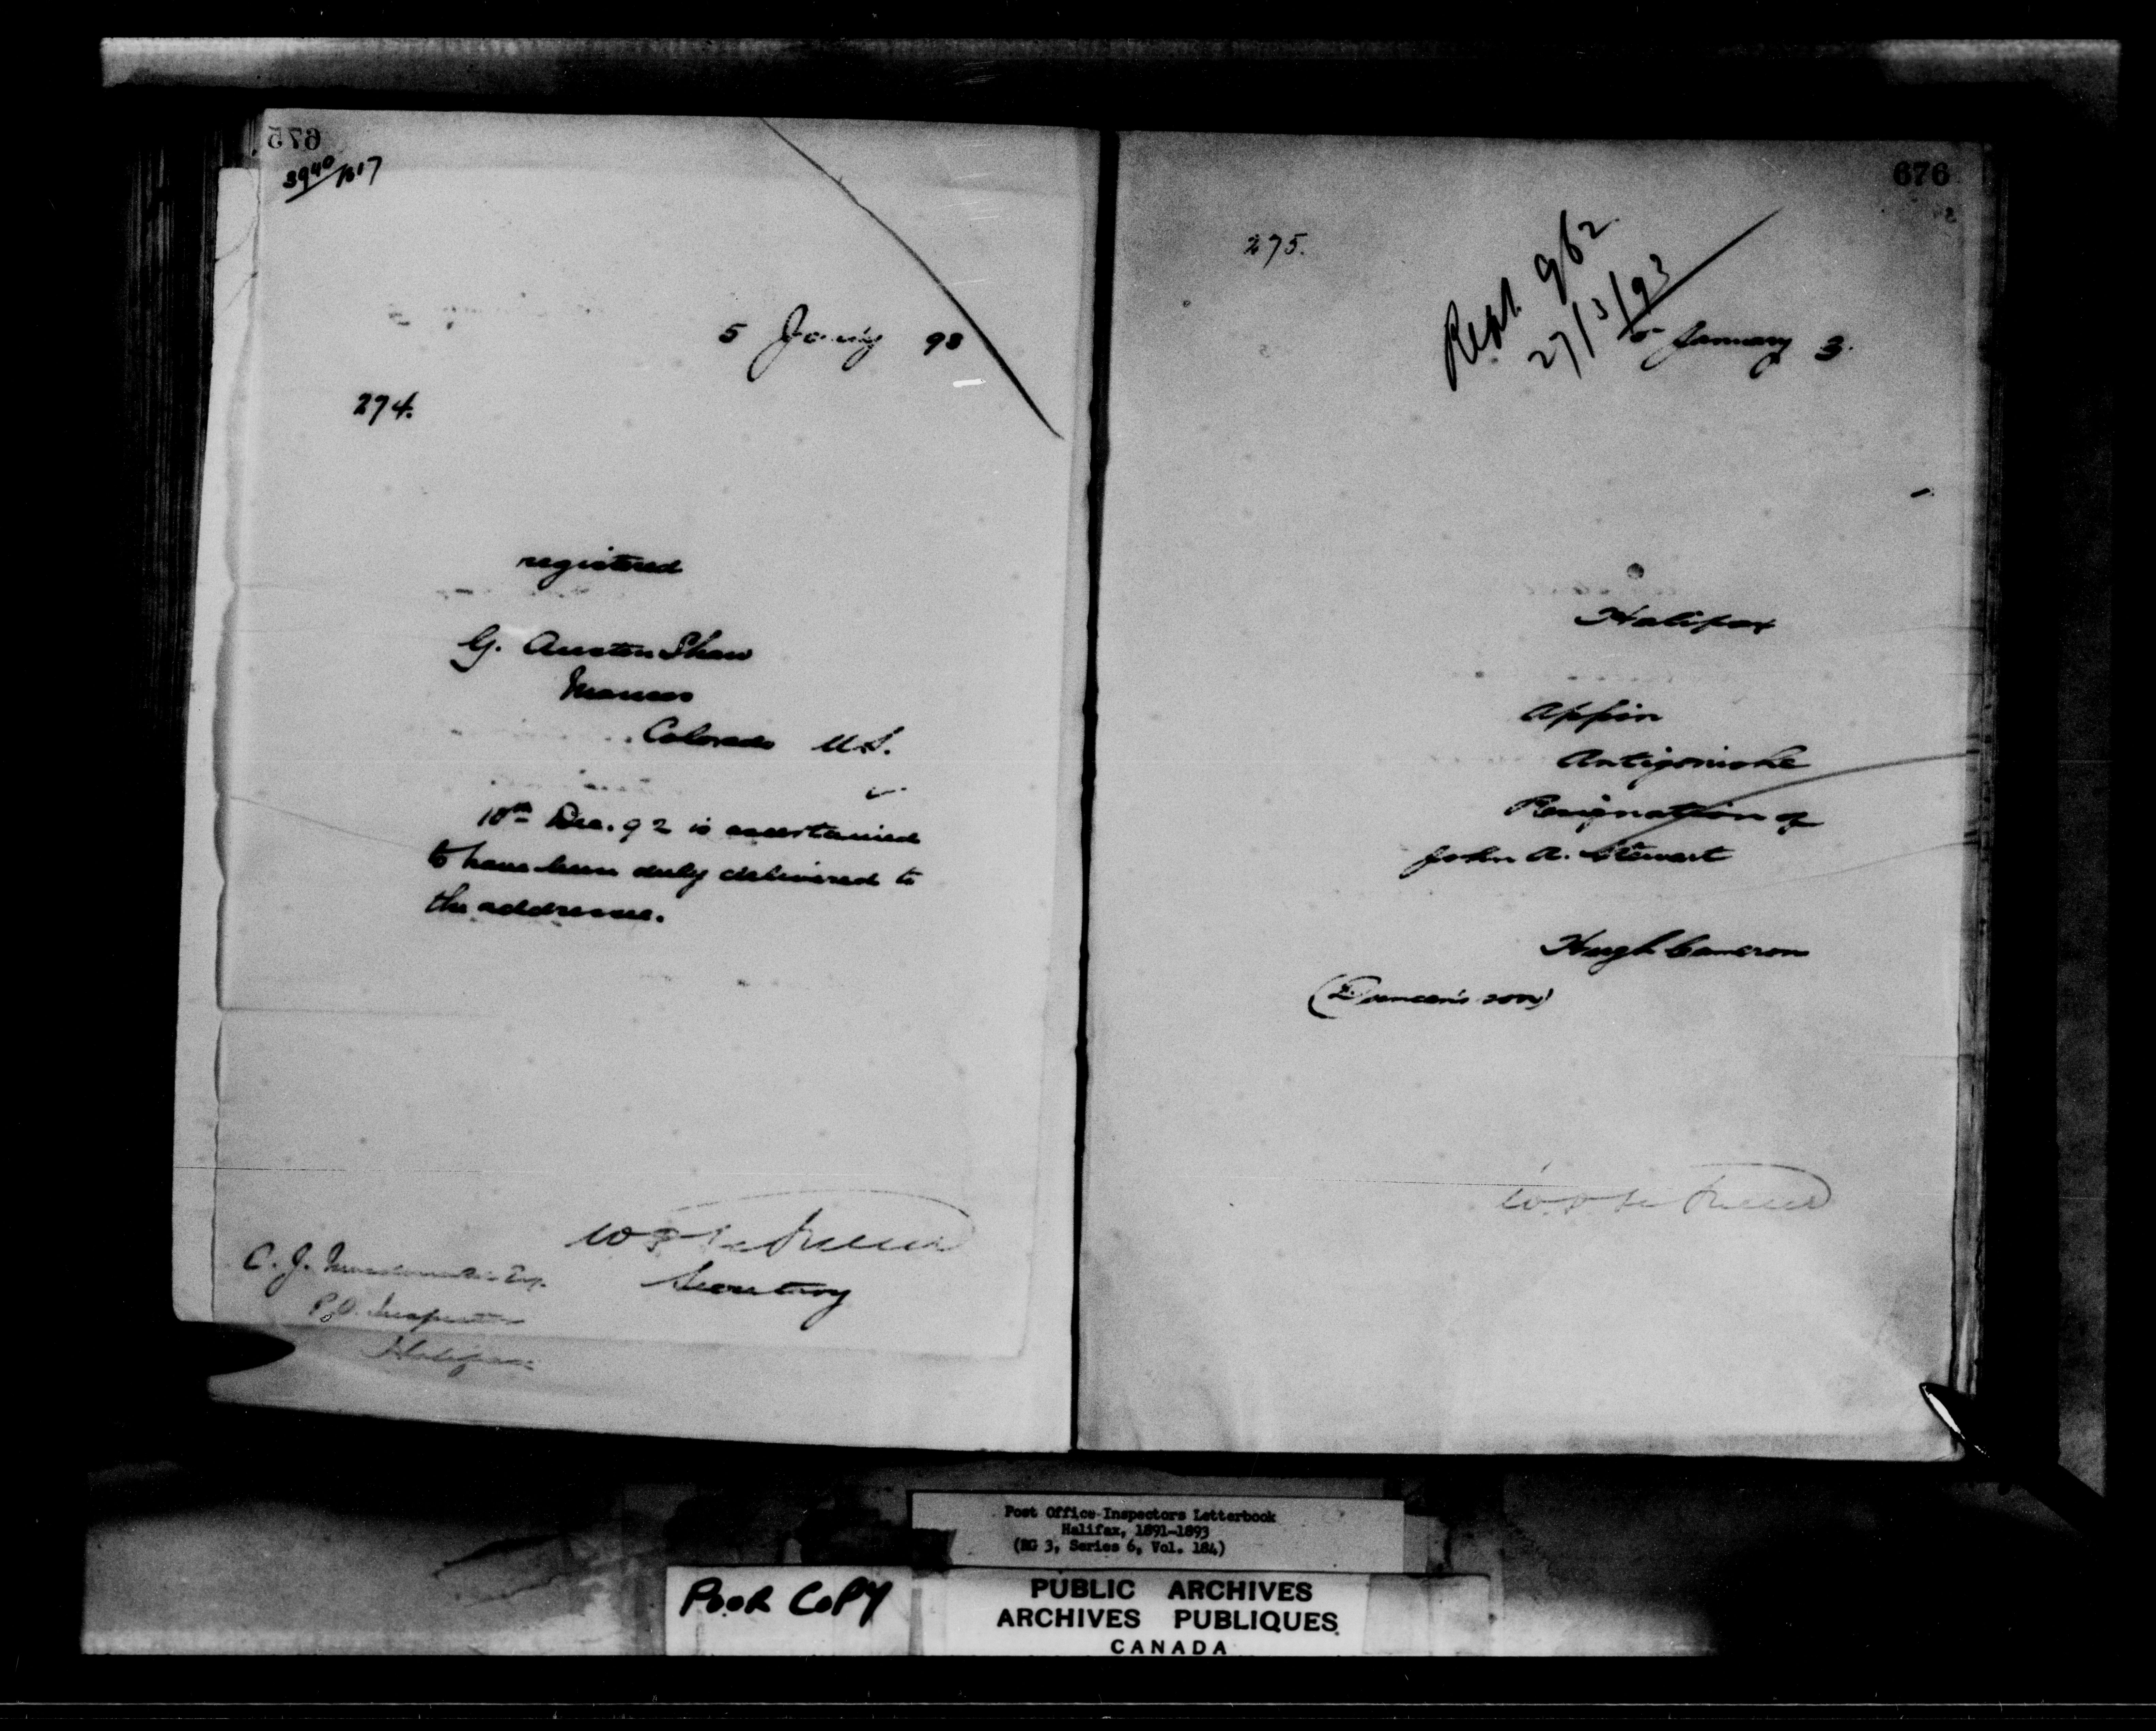 675
3940/1617
5 Jan'y 93
274.
registered
G. Austen Shaw
Mancos
Colorado U.S.
10th Dec. 92 is ascertained
to have been duly delivered to
the addressee.
Secretary
C. J. Macdonald Esq.
P.O. Inspector
Halifax
676
275.
Rept 962
27/3/93
5 January 3.
Halifax
Appin
Antigonishe
Resignation of
John A. Stewart
Hugh Cameron
(Duncan's son)
Post Office Inspectors Letterbook
Halifax, 1891-1893
(RG 3, Series 6, Vol. 184)
POOR COPY
PUBLIC ARCHIVES
ARCHIVES PUBLIQUES
CANADA